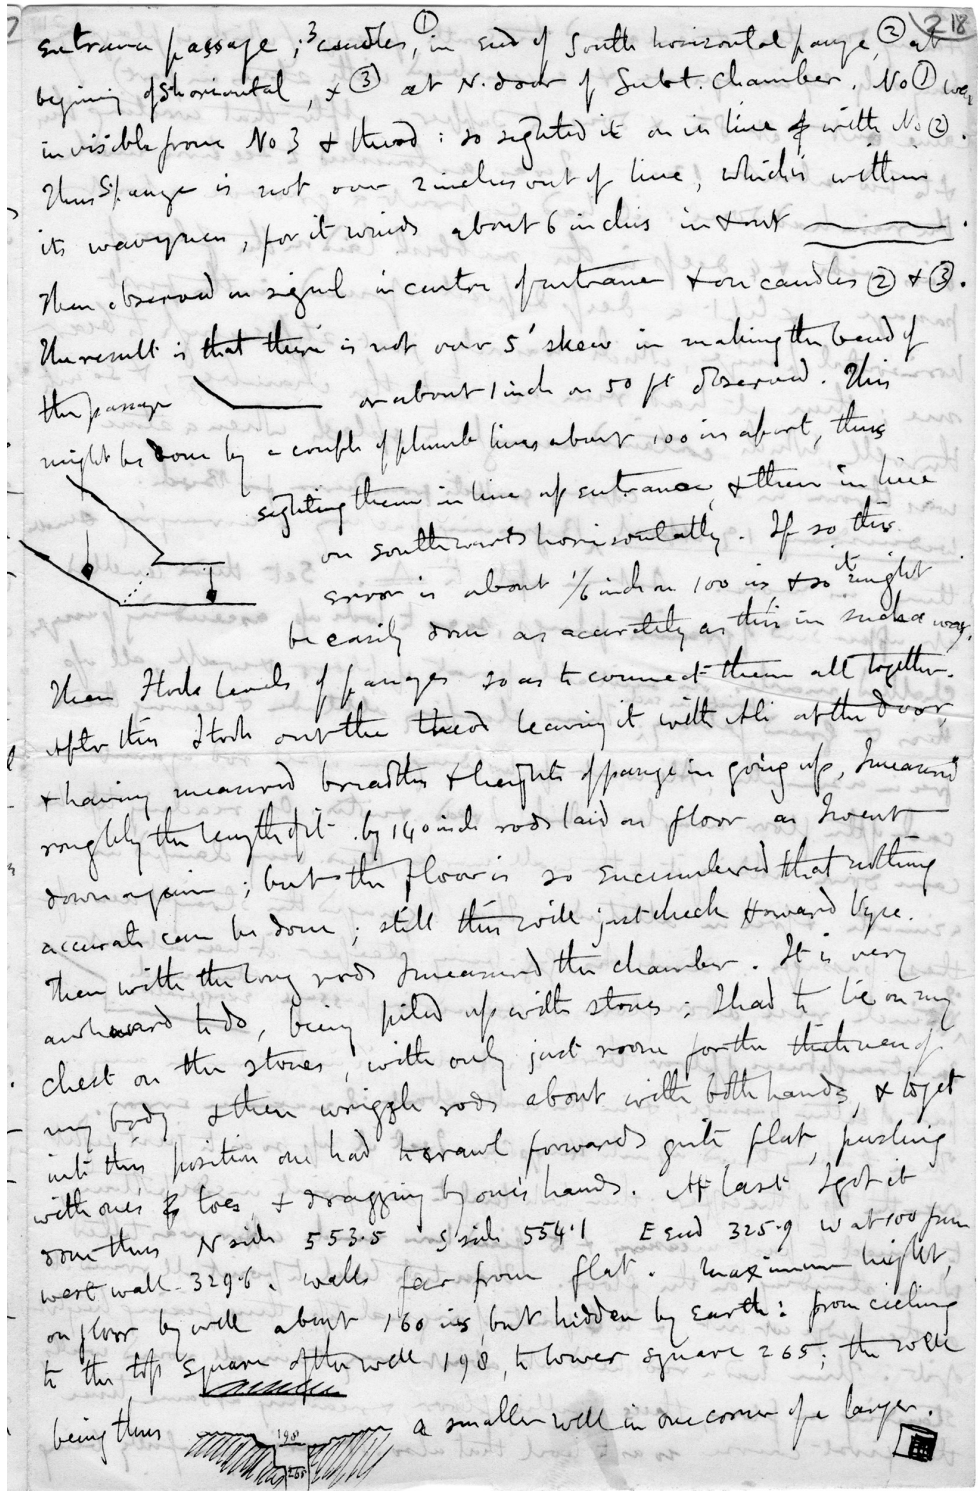 218
entrance passage; 3 candles, ① in end of South horizontal passage, ② at
begining of S horizontal, & ③ at N. door of Subt. chamber. No ① was
invisible from No 3 & theod: so sighted it on in line with No ②.
Thus S passage is not over 2 inches out of line, which is within
its wavyness, for it winds about 6 inches in & out
Then observed on signal in centre of entrance & on candles ② & ③.
The result is that there is not over 5' skew in making the bend of
the passage or about 1 inch on 50 ft observed. This
might be done by a couple of plumb lines about 100 ins apart, thus
sighting them in line up entrance, & then in line
on southwards horizontally. If so the
error is about 1/6 inch on 100 ins, & so it might
be easily done as accurately as this in such a way.
Then I took levels of passages so as to connect them all together.
After this I took out the theod leaving it with Ali at the door,
& having measured breadths & heights of passage in going up, I measured
roughly the length of it by 140 inch rods laid on floor as I went
down again; but the floor is so encumbered that nothing
accurate can be done; still this will just check Howard Vyse.
Then with the long rods I measured the chamber. It is very
awkward to do, being piled up with stones; I had to lie on my
chest on the stones, with only just room for the thickness of
my body & then wriggle rods about with both hands, & to get
into this position one had to crawl forwards quite flat, pushing
with one's toes, & dragging by one's hands. At last I got it
done thus N side 553.5 S side 554.1 E end 325.9 W at 100 from
west wall 329.6. walls far from flat. Maximum height,
on floor by well about 160 ins, but hidden by earth: from cieling
to the top square of the well 198, to lower square 265; the well
being thus a smaller well in one corner of a larger.
198
265